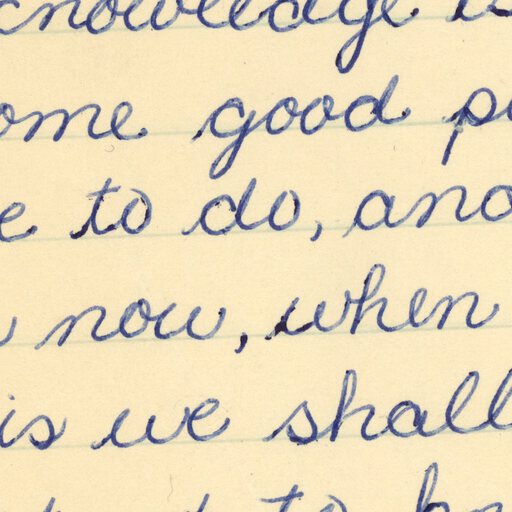 knowledge is
ome good p
e to do, and
now, when
is we shall
to